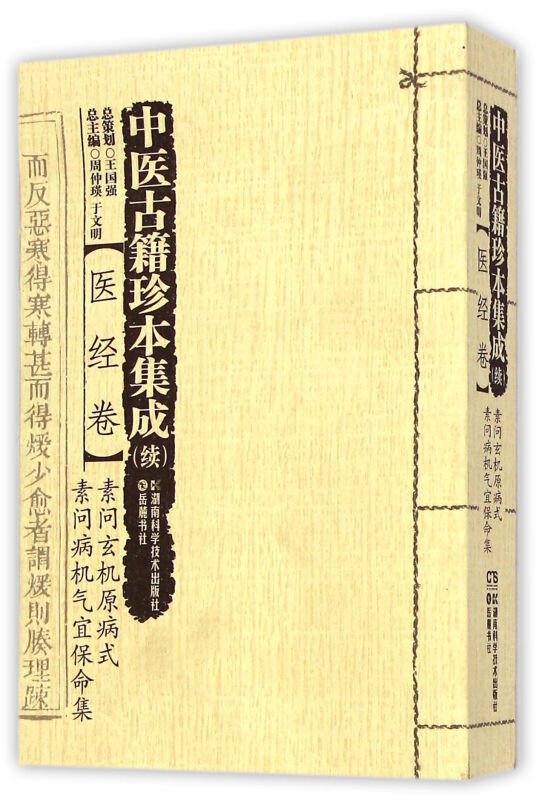 中医古籍珍本集成(续)
湖南科学技术出版社
岳麓书社
总策划○王国强
总主编○周仲瑛 于文明
【医经卷】
素问玄机原病式
素问病机气宜保命集
而反惡寒得寒轉甚而得煖少愈者謂煖則腠理踈
中医古籍珍本集成(续)
总策划○王国强
总主编○周仲瑛 于文明
【医经卷】
素问玄机原病式
素问病机气宜保命集
湖南科学技术出版社
岳麓书社